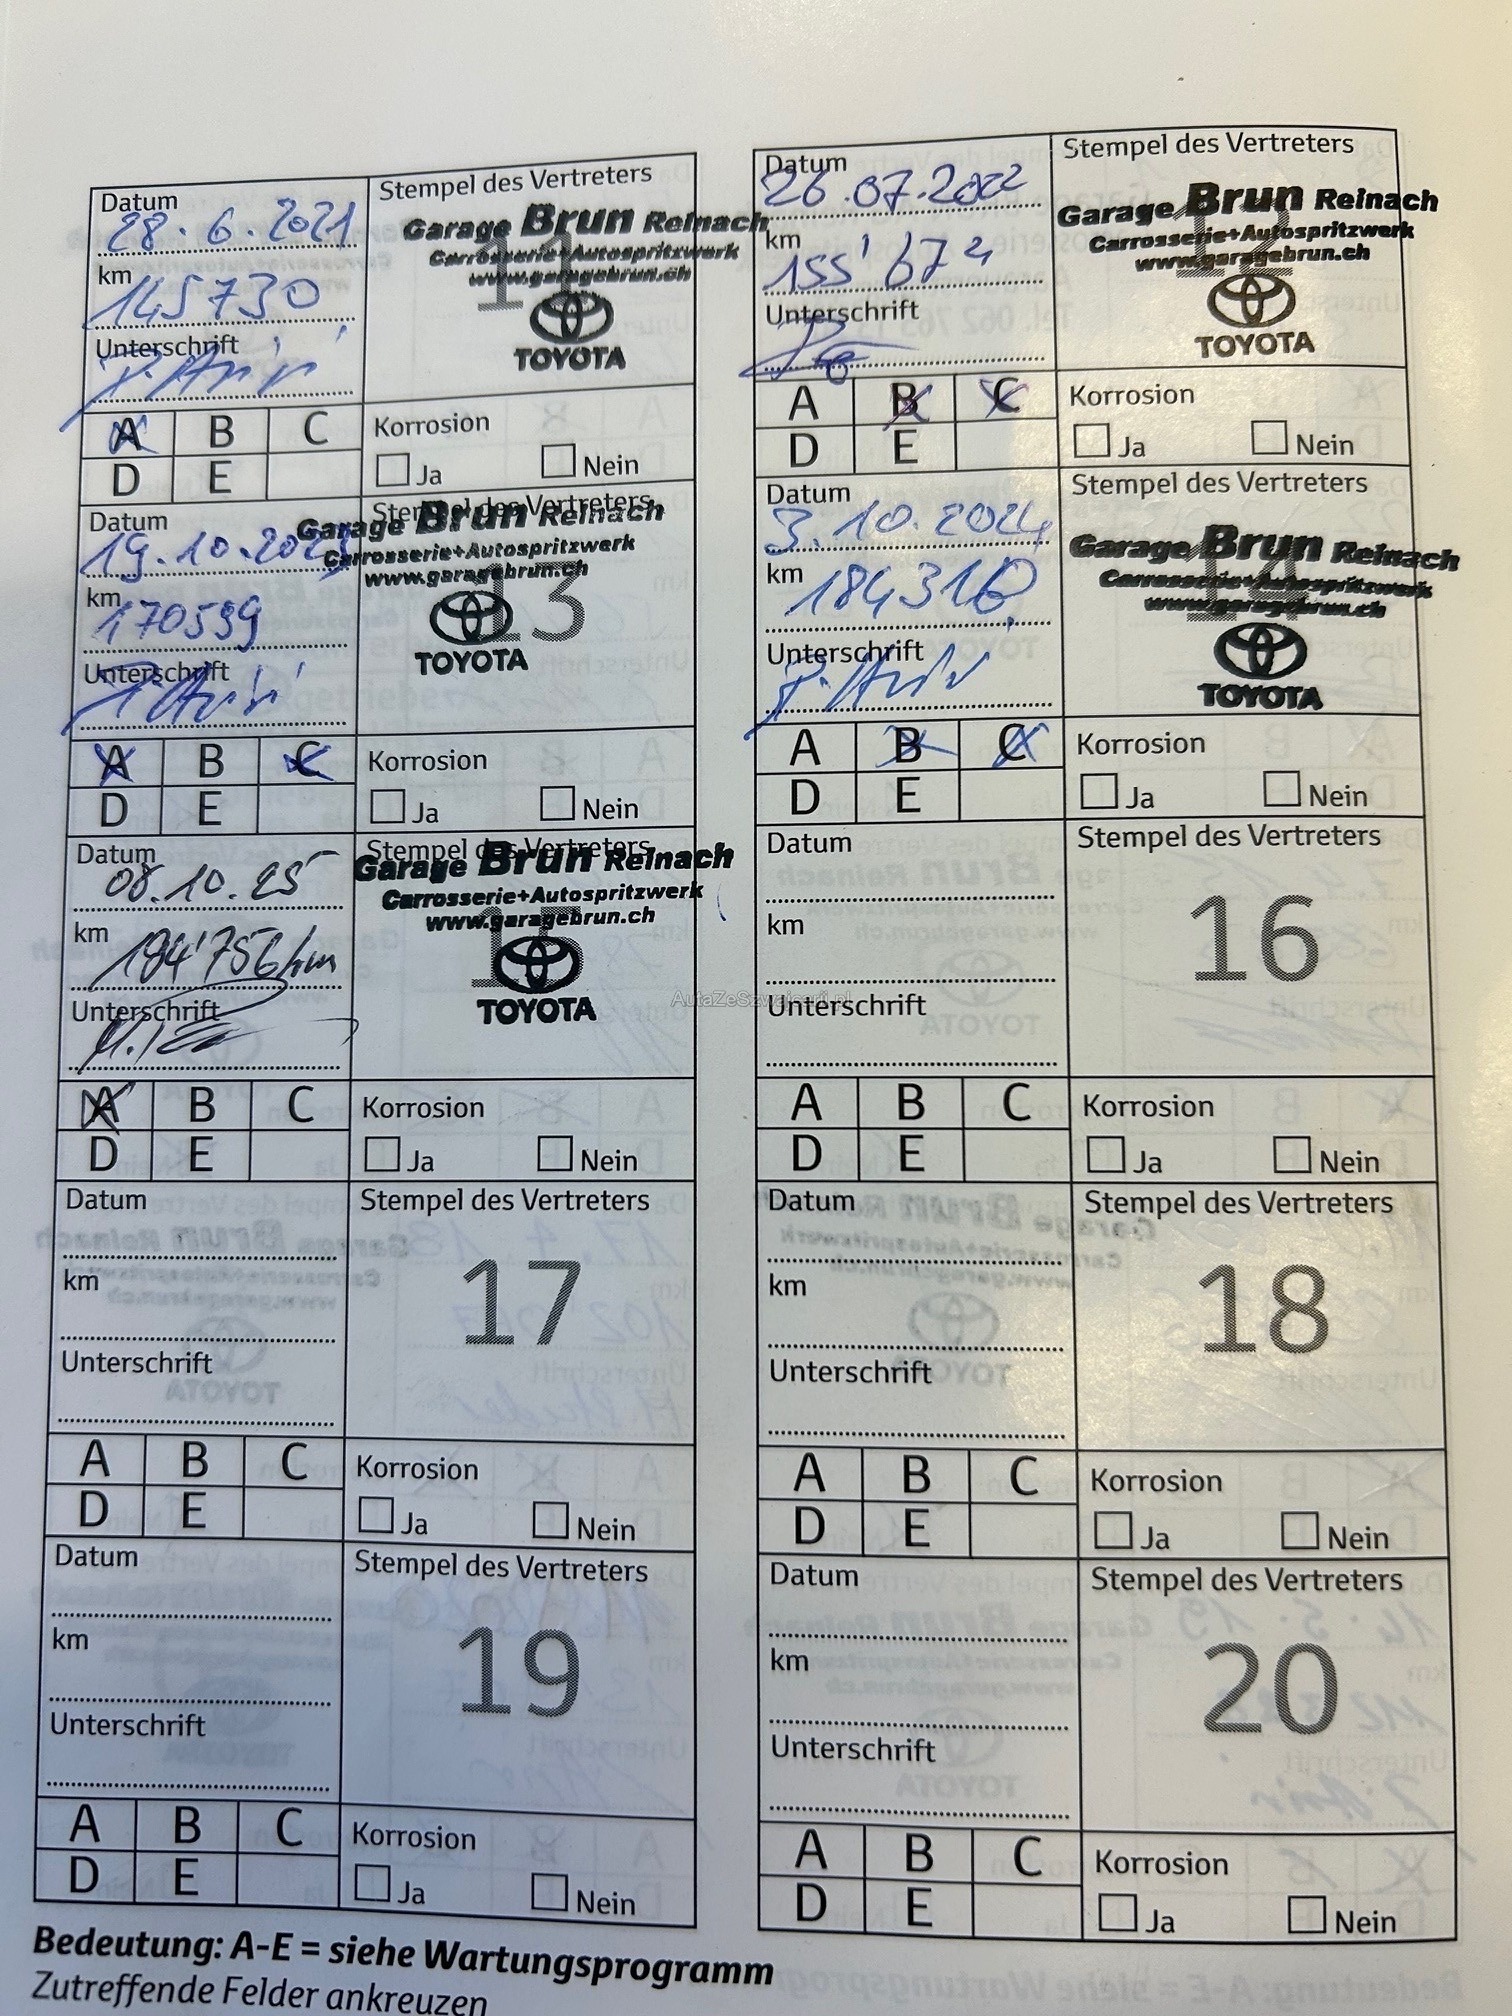 Datum
28.6.2021
km
145730
Unterschrift
Stempel des Vertreters
Garage Brun Reinach
Carrosserie+Autospritzwerk
www.garagebrun.ch
11
TOYOTA
A B C
D E
Korrosion
Ja Nein
Datum
26.07.2022
km
155'672
Unterschrift
Stempel des Vertreters
Garage Brun Reinach
Carrosserie+Autospritzwerk
www.garagebrun.ch
12
TOYOTA
A B C
D E
Korrosion
Ja Nein
Datum
19.10.2023
km
170539
Unterschrift
Stempel des Vertreters
Garage Brun Reinach
Carrosserie+Autospritzwerk
www.garagebrun.ch
13
TOYOTA
A B C
D E
Korrosion
Ja Nein
Datum
3.10.2024
km
Unterschrift
Stempel des Vertreters
Garage Brun Reinach
Carrosserie+Autospritzwerk
www.garagebrun.ch
14
TOYOTA
A B C
D E
Korrosion
Ja Nein
Datum
08.10.25
km
184'756 km
Unterschrift
Stempel des Vertreters
Garage Brun Reinach
Carrosserie+Autospritzwerk
www.garagebrun.ch
15
TOYOTA
A B C
D E
Korrosion
Ja Nein
Datum
km
Unterschrift
Stempel des Vertreters
16
A B C
D E
Korrosion
Ja Nein
AutaZeSzwajcarii.pl
Datum
km
Unterschrift
Stempel des Vertreters
17
A B C
D E
Korrosion
Ja Nein
Datum
km
Unterschrift
Stempel des Vertreters
18
A B C
D E
Korrosion
Ja Nein
Datum
km
Unterschrift
Stempel des Vertreters
19
A B C
D E
Korrosion
Ja Nein
Datum
km
Unterschrift
Stempel des Vertreters
20
A B C
D E
Korrosion
Ja Nein
Bedeutung: A-E = siehe Wartungsprogramm
Zutreffende Felder ankreuzen